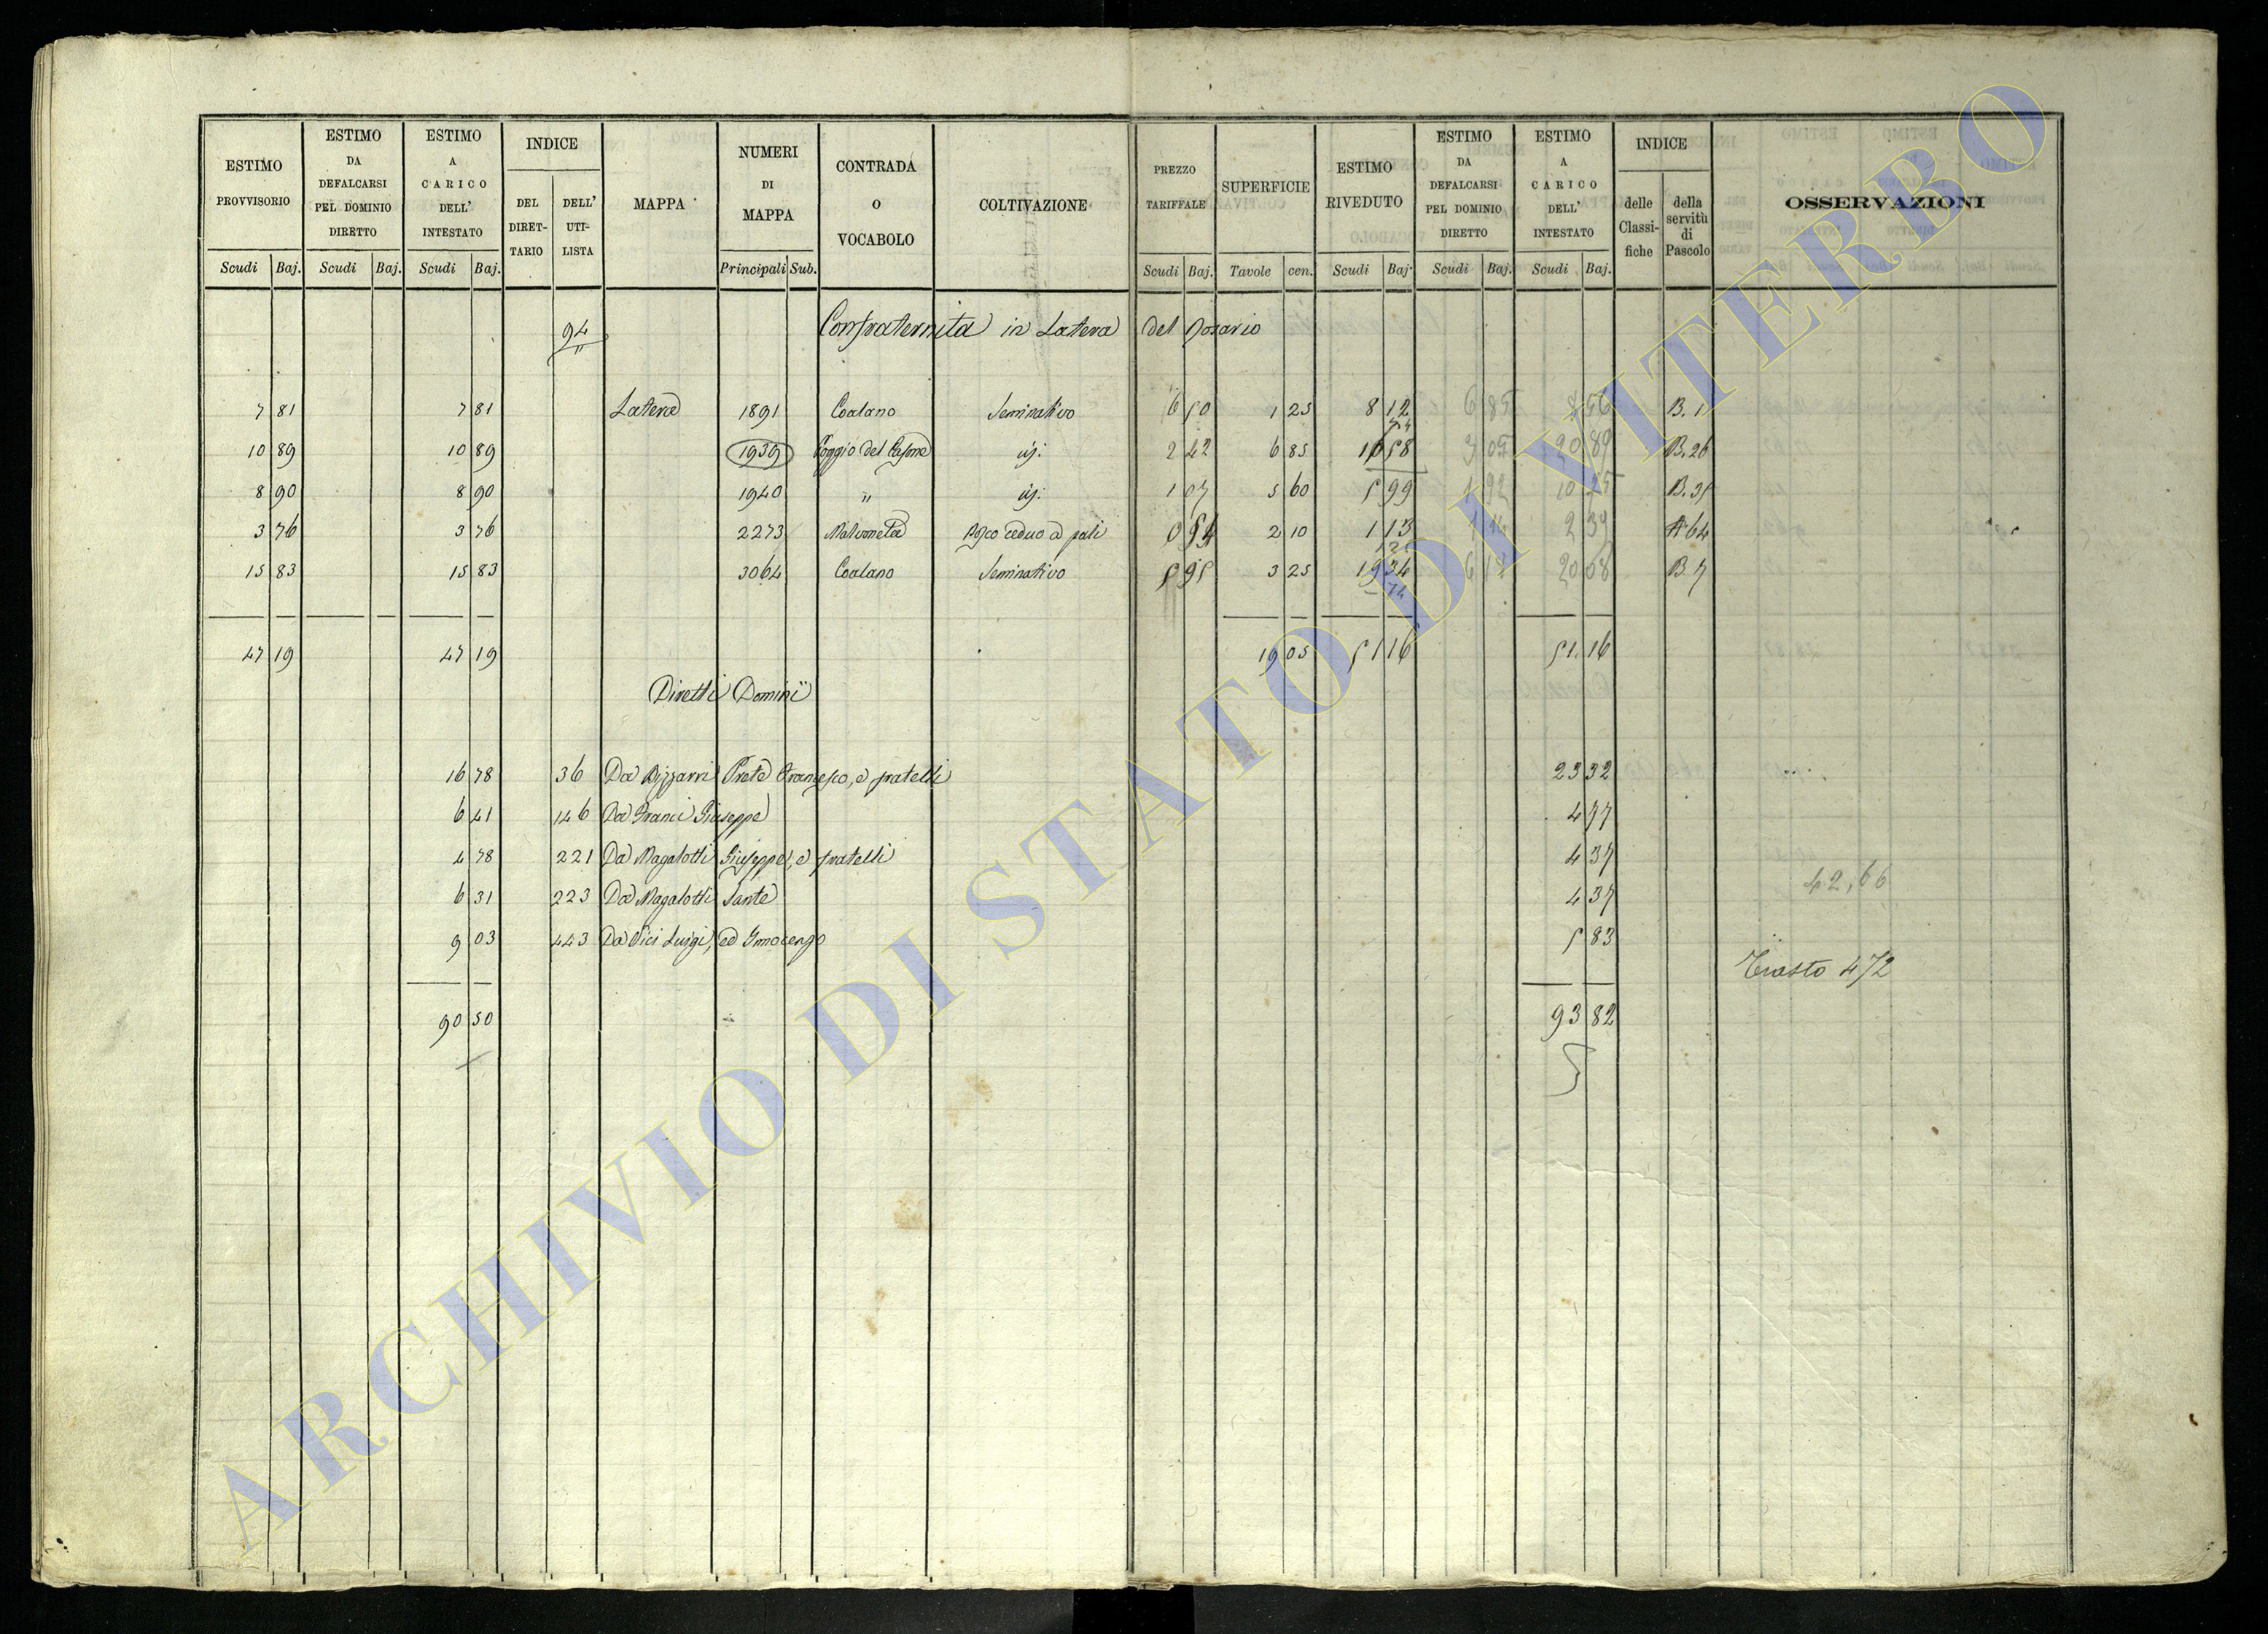 ESTIMO PROVVISORIO
ESTIMO DA DEFALCARSI PEL DOMINIO DIRETTO
ESTIMO A CARICO DELL' INTESTATO
INDICE
DEL DIRET-TARIO
DELL' UTI-LISTA
MAPPA
NUMERI DI MAPPA
CONTRADA O VOCABOLO
COLTIVAZIONE
PREZZO TARIFFALE
SUPERFICIE
ESTIMO RIVEDUTO
ESTIMO DA DEFALCARSI PEL DOMINIO DIRETTO
ESTIMO A CARICO DELL' INTESTATO
INDICE
delle Classi-fiche
della servitù di Pascolo
OSSERVAZIONI
Scudi Baj. Scudi Baj. Scudi Baj. Principali Sub. Scudi Baj. Tavole cen. Scudi Baj. Scudi Baj. Scudi Baj.
94 Confraternita in Latera del Rosario
7 81 7 81 Latera 1891 Coalano Seminativo 6 50 1 25 8 12 6 85 8 56 B. 1
10 89 10 89 1939 Poggio del 2 42 6 85 16 58 3 05 20 89 B. 26
8 90 8 90 1940 " 1 07 5 60 5 99 1 92 B. 35
3 76 3 76 2273 Bosco ceduo a pali 0 54 2 10 1 13 2 39 64
15 83 15 83 3064 Coalano Seminativo 5 95 3 25 19 34 20 08 B. 7
47 19 47 19 19 05 51 16 51. 16
Diretti Dominii
16 78 36 Da Bizzarri Prete Francesco, e fratelli 23 32
6 41 146 Da Franci Giuseppe 4 77
4 78 221 Da Magalotti Giuseppe, e fratelli 4 37
42,66
6 31 223 Da Magalotti Sante 4 37
9 03 443 Da Vici Luigi, ed Innocenzo 5 83
472
90 50 93 82
ARCHIVIO DI STATO DI VITERBO